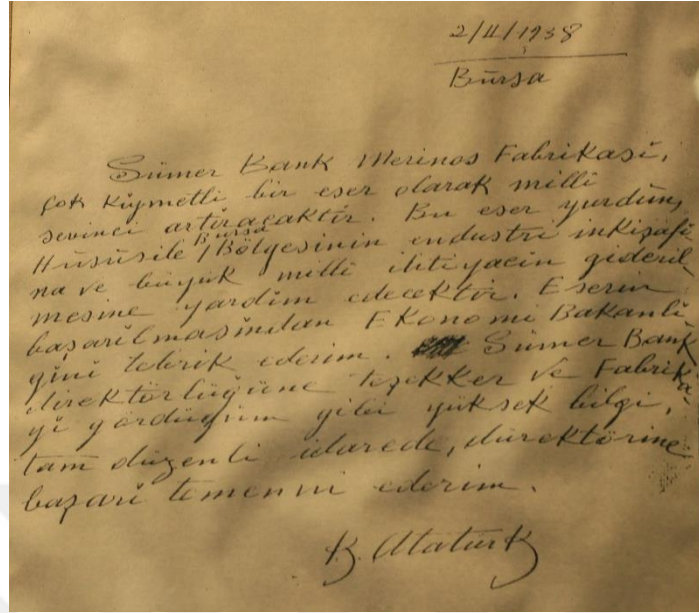 2/II/1938
Bursa
Sümer Bank Merinos Fabrikasi,
çok kıymetli bir eser olarak milli
sevinci artıracaktır. Bu eser yurdun,
Hususile Bursa Bölgesinin endustri inkişafı
na ve büyük milli ihtiyacın gideril-
mesine yardım edecektir. Eserin
başarılmasından Ekonomi Bakanlı
ğını tebrik ederim. Sümer Bank
direktörlüğüne teşekker ve Fabrika
yı gördüğüm gibi yüksek bilgi,
tam düzenli idarede, düraktörine
başarı temenni ederim.
K. Atatürk